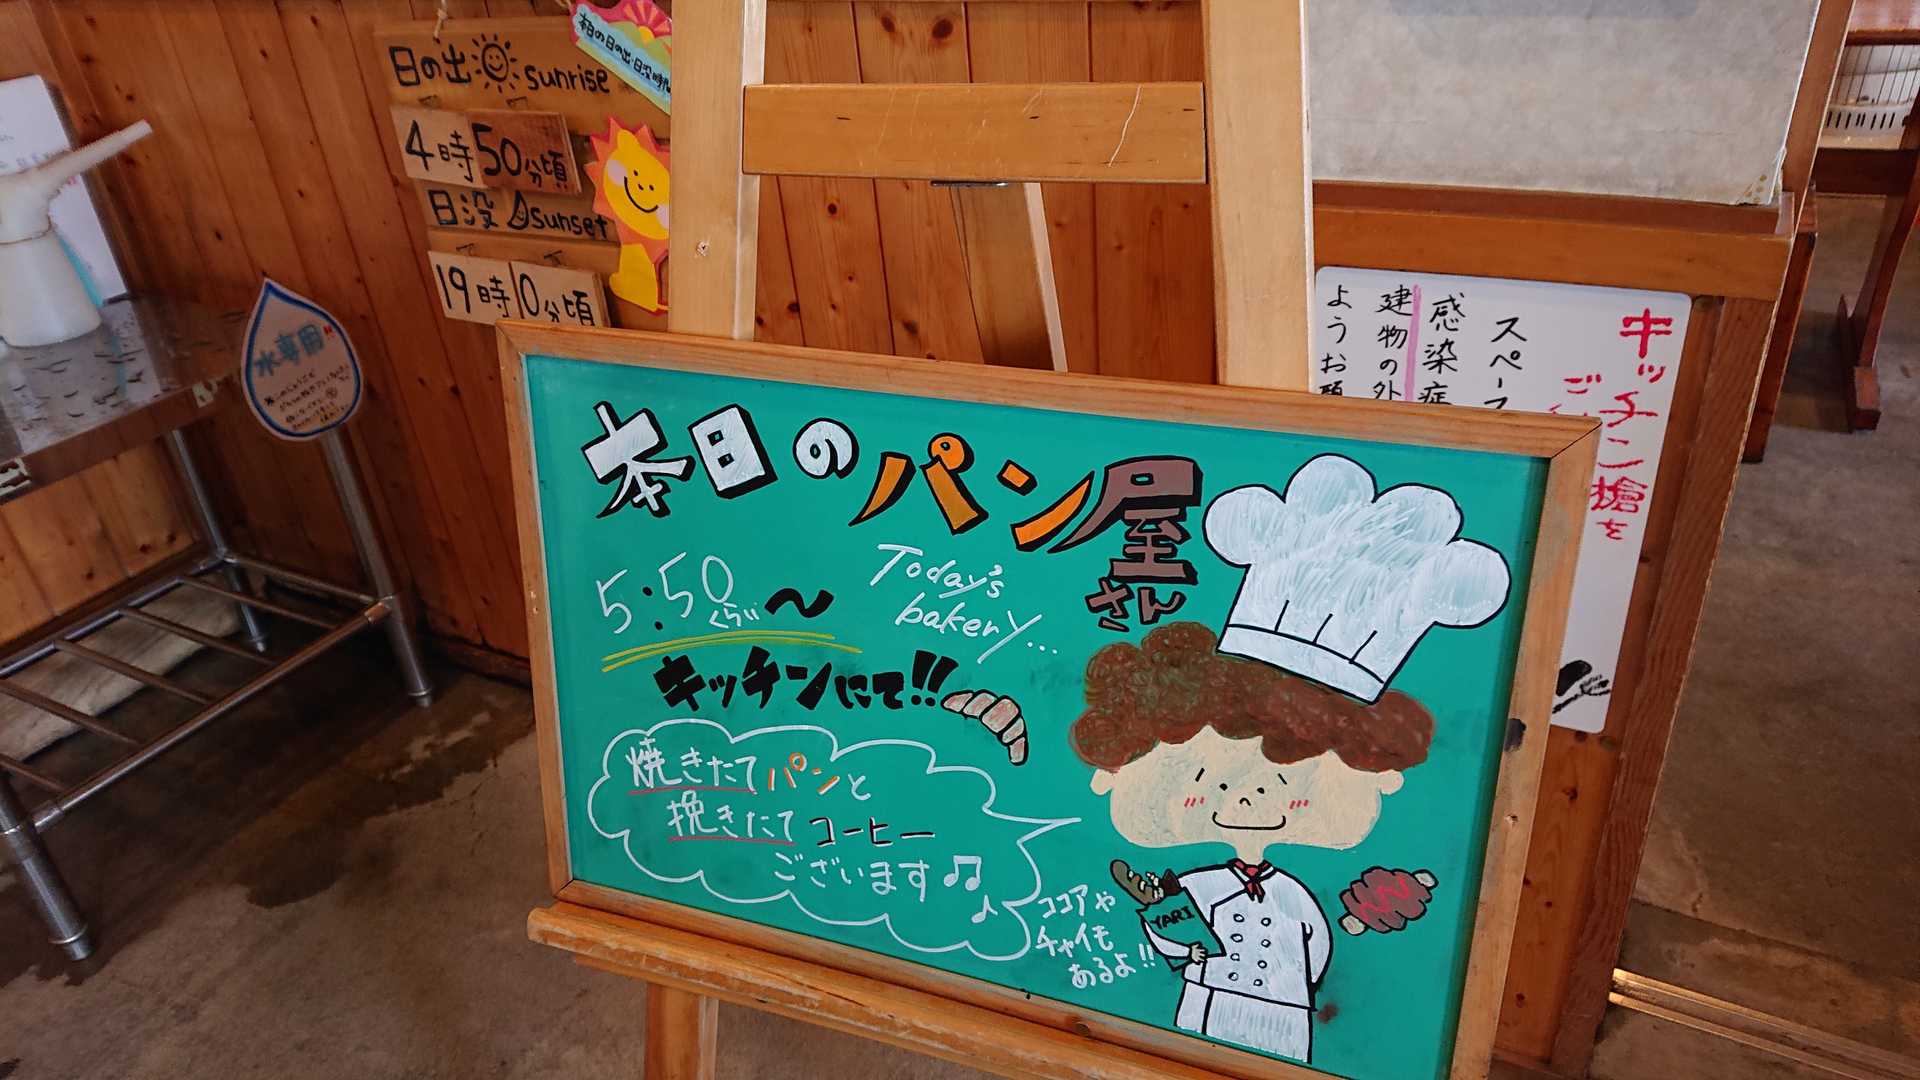 日の出 sunrise
4時50分頃
日没 sunset
19時10分頃
水専用
本日のパン屋さん
Today's
bakery...
5:50くらい〜
キッチンにて!!
焼きたてパンと
挽きたてコーヒー
ございます
ココアや
チャイも
あるよ!!
YARI
キッチン槍を
スペース
感染症
建物の外
ようお願